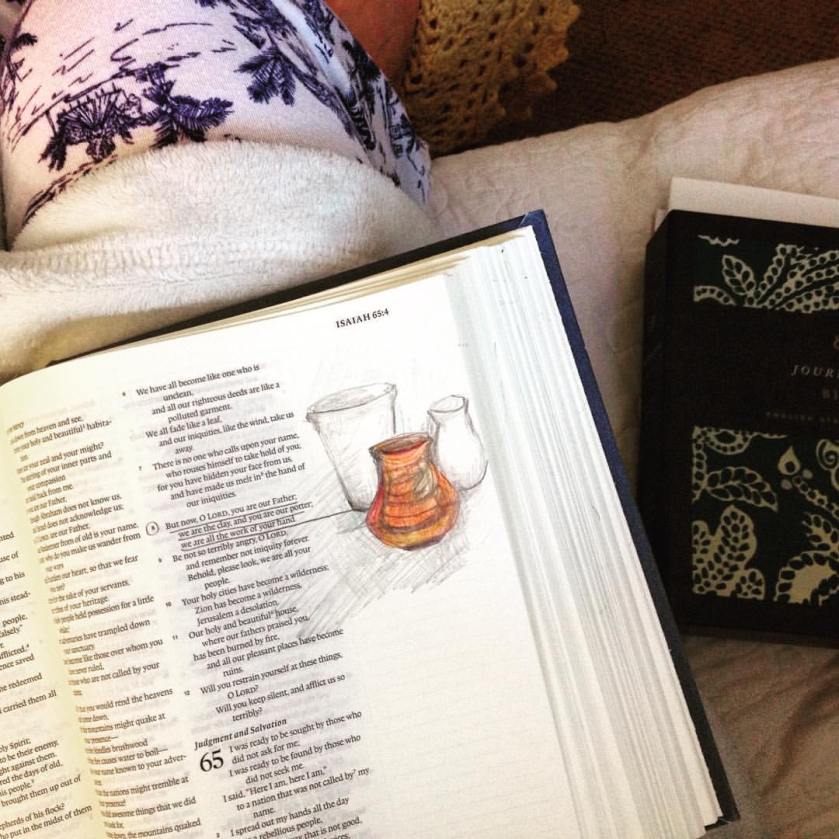 ISAIAH 65:4
use of
g to his
his stead-
people.
alsely."
fflicted."
ence saved
he redeemed
carried them all
oly Spirit;
to be their enemy,
ght against them.
red the days of old,
is people."
brought them up out of
epherds of his flock?
ho put in the midst of them
down from heaven and see,
holy and beautiful habita-
are your zeal and your might?
stirring of your inner parts and
compassion
are our Father,
Abraham does not know us,
and does not acknowledge us;
are our Father,
Redeemer from of old is your name.
why do you make us wander from
our ways
our heart, so that we fear
for the sake of your servants,
tribes of your heritage.
people held possession for a little
while;
adversaries have trampled down
sanctuary.
become like those over whom you
have never ruled,
those who are not called by your
name.
that you would rend the heavens
come down,
mountains might quake at
presence—
fire kindles brushwood
fire causes water to boil—
your name known to your adver-
the nations might tremble at
presence!
did awesome things that we did
look for,
down, the mountains quaked
6 We have all become like one who is
unclean,
and all our righteous deeds are like a
polluted garment.
We all fade like a leaf,
and our iniquities, like the wind, take us
away.
7 There is no one who calls upon your name,
who rouses himself to take hold of you;
for you have hidden your face from us,
and have made us melt in the hand of
our iniquities.
8 But now, O LORD, you are our Father;
we are the clay, and you are our potter;
we are all the work of your hand.
9 Be not so terribly angry, O LORD,
and remember not iniquity forever.
Behold, please look, we are all your
people.
10 Your holy cities have become a wilderness;
Zion has become a wilderness,
Jerusalem a desolation.
11 Our holy and beautiful house,
where our fathers praised you,
has been burned by fire,
and all our pleasant places have become
ruins.
12 Will you restrain yourself at these things,
O LORD?
Will you keep silent, and afflict us so
terribly?
Judgment and Salvation
65 I was ready to be sought by those who
did not ask for me;
I was ready to be found by those who
did not seek me.
I said, "Here I am, here I am,"
to a nation that was not called by my
name.
2 I spread out my hands all the day
to a rebellious people,
that is not good,
JOUR
B
ENGLISH